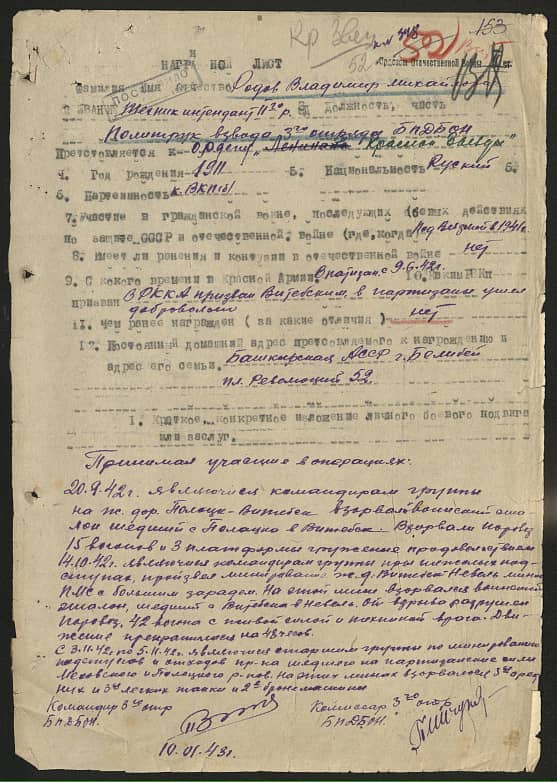 Кр Звез
№ 478
153
52
НАГРАДНОЙ ЛИСТ
ПОСТУПИЛО
Орденом Отечественной Войны
Фамилия имя отчество Родов Владимир Михайлович
2 Звание Техник интендант II го р. 3 Должность, часть
Политрук взвода 3го отряда БПДБОН
Претставляется к ордену „Ленина" "Красной Звезды"
4. Год рождения 1911 5. Национальность Руский 6.
6. Партейность к. ВКП(б)
7. Участие в гражданской войне, последующих боевых действиях
по защите СССР и отечественной войне (где, когда) Под Вязмой в 1941 г.
8. Имеет ли ранения и контузии в отечественной войне нет
9. С какого времени в Красной Армии В партизан. с 9.6.42г.
призван В РККА призван Витебским, в партизаны ушел
добровольно
11. Чем ранее награжден ( за какие отличия ) нет
12. Постоянный домашний адрес претставляемого к награждению и
адрес его семьи. Башкирская АССР г. Белибей
пл. Революций 52
1. Краткое, конкретное изложение личного боевого подвига
или заслуг.
Принимая участие в операциях:
20.9.42г. являючись командирам группы
на ж. дор. Полоцк-Витебск взорвал воинский эша
лон шедший с Полоцка в Витебск. Взорвали поровоз
15 вогонов и 3 платформы гружение продовольствием
14.10.42г. являючись командирам группы при
ступах, произвел минирование ж.д. Витебск Невель миной
ПМС с большим зарядом. На этой мине взорвался воинский
эшалон, шедший с Витебска в Невель. От взрыва разрушен
поровоз, 42 вогона с живой силой и техникой врага. Дви-
жение прекратилось на 48 часов.
С 3.11.42г. по 5.11.42г. являючись старшим группы по минированию
подступов и отходов пр-ка шедшего на партизанские силы
Меховского и Полоцкого р-нов. На этих минах взорвалось
и 3 легких танки и 2е бронемашины
Командир 3го отр
БПДБОН.
Комиссар 3го отр
БПДБОН.
10.01.43г.